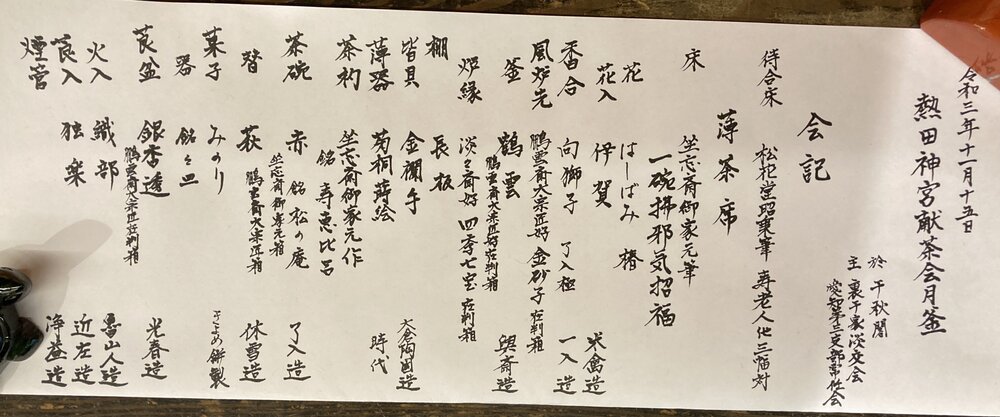 令和三年十一月十五日
熱田神宮献茶会月釜
於 千秋閣
主 裏千家淡交会
愛知第二支部常任会
会記
待合床 松花堂昭乗筆 寿老人化三幅対
薄茶席
床 坐忘斎御家元筆
一碗掃邪気招福
花 はしばみ 椿
花入 伊賀
香合 向獅子 了入極 一入造
風炉先 鵬雲斎大宗匠好 金砂子 在判箱
釜 鶴雲 興斎造
鵬雲斎大宗匠好在判箱
炉縁 淡々斎好 四季七宝 在判箱
棚 長板
皆具 金襴手 大倉陶園造
薄器 菊桐蒔絵 時代
茶杓 坐忘斎御家元作
銘 寿恵比呂
茶碗 赤 銘 松の庵 了入造
坐忘斎御家元箱
替 萩 休雪造
鵬雲斎大宗匠箱
菓子 みのり 製
器 銘々皿
莨盆 銀杏透 光春造
鵬雲斎大宗匠在判箱
火入 織部 山人造
莨入 独楽 近左造
煙管 浄益造